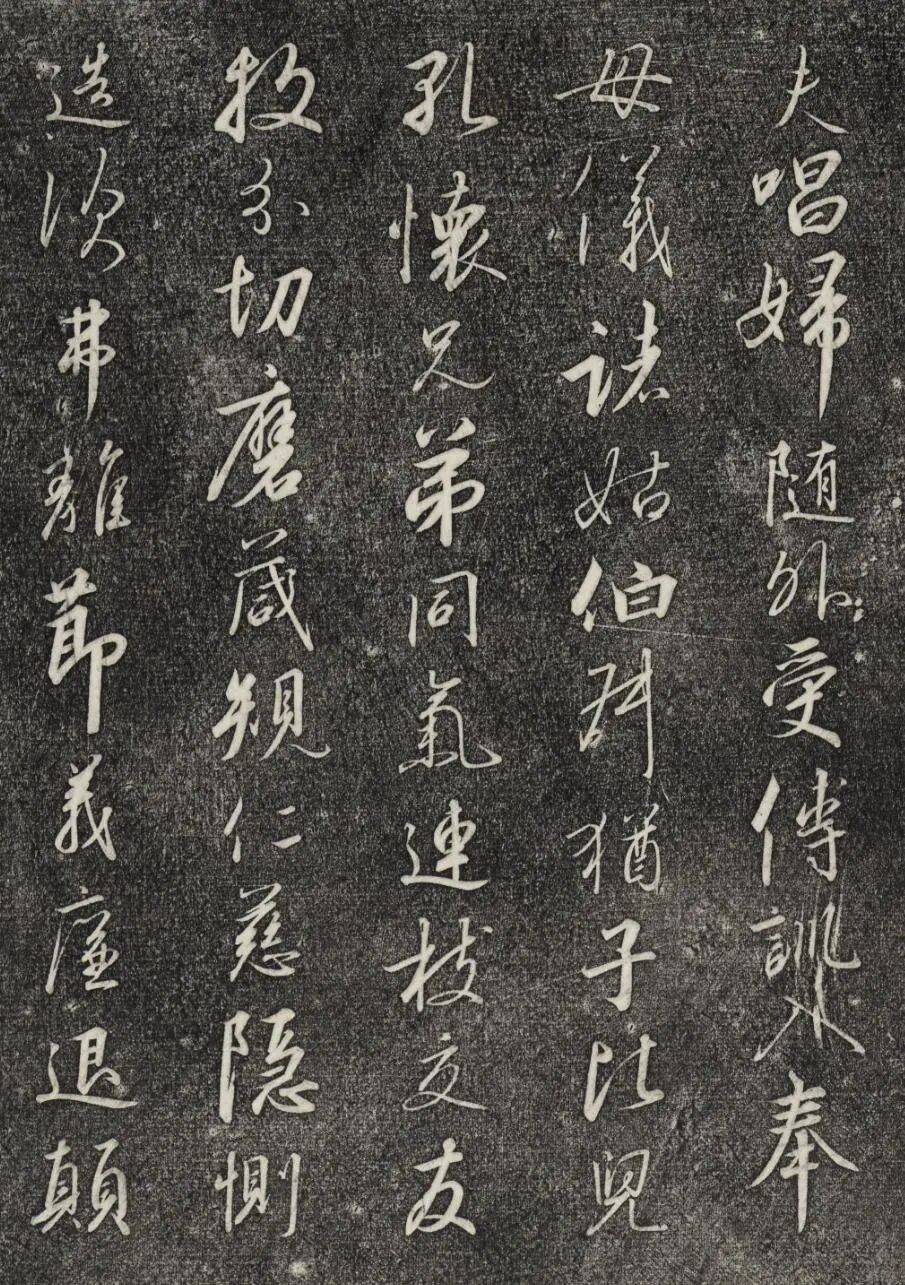 夫唱婦随外受傅訓入奉
母儀諸姑伯叔猶子比兒
孔懷兄弟同氣連枝交友
投分切磨箴規仁慈隠惻
造次弗離節義廉退顛